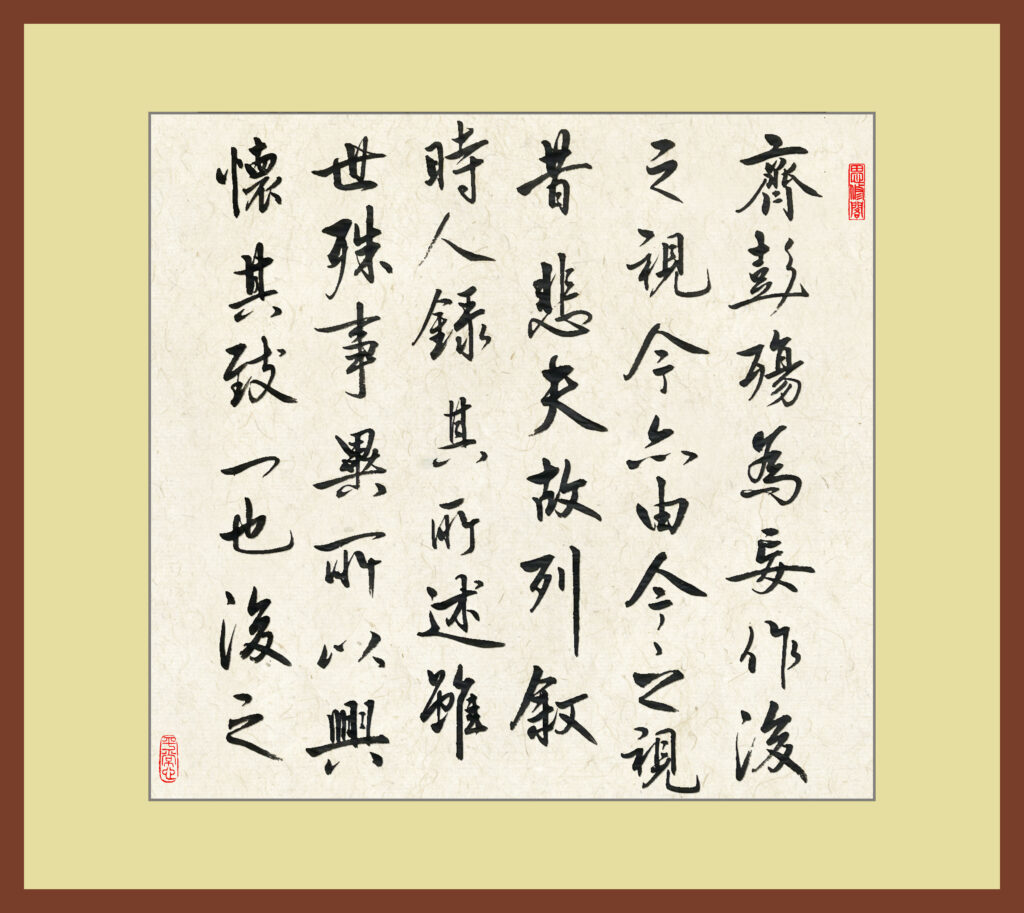 齊彭殤為妄作後
之視今亦由今之視
昔悲夫故列敘
時人錄其所述雖
世殊事異所以興
懷其致一也後之
平常心